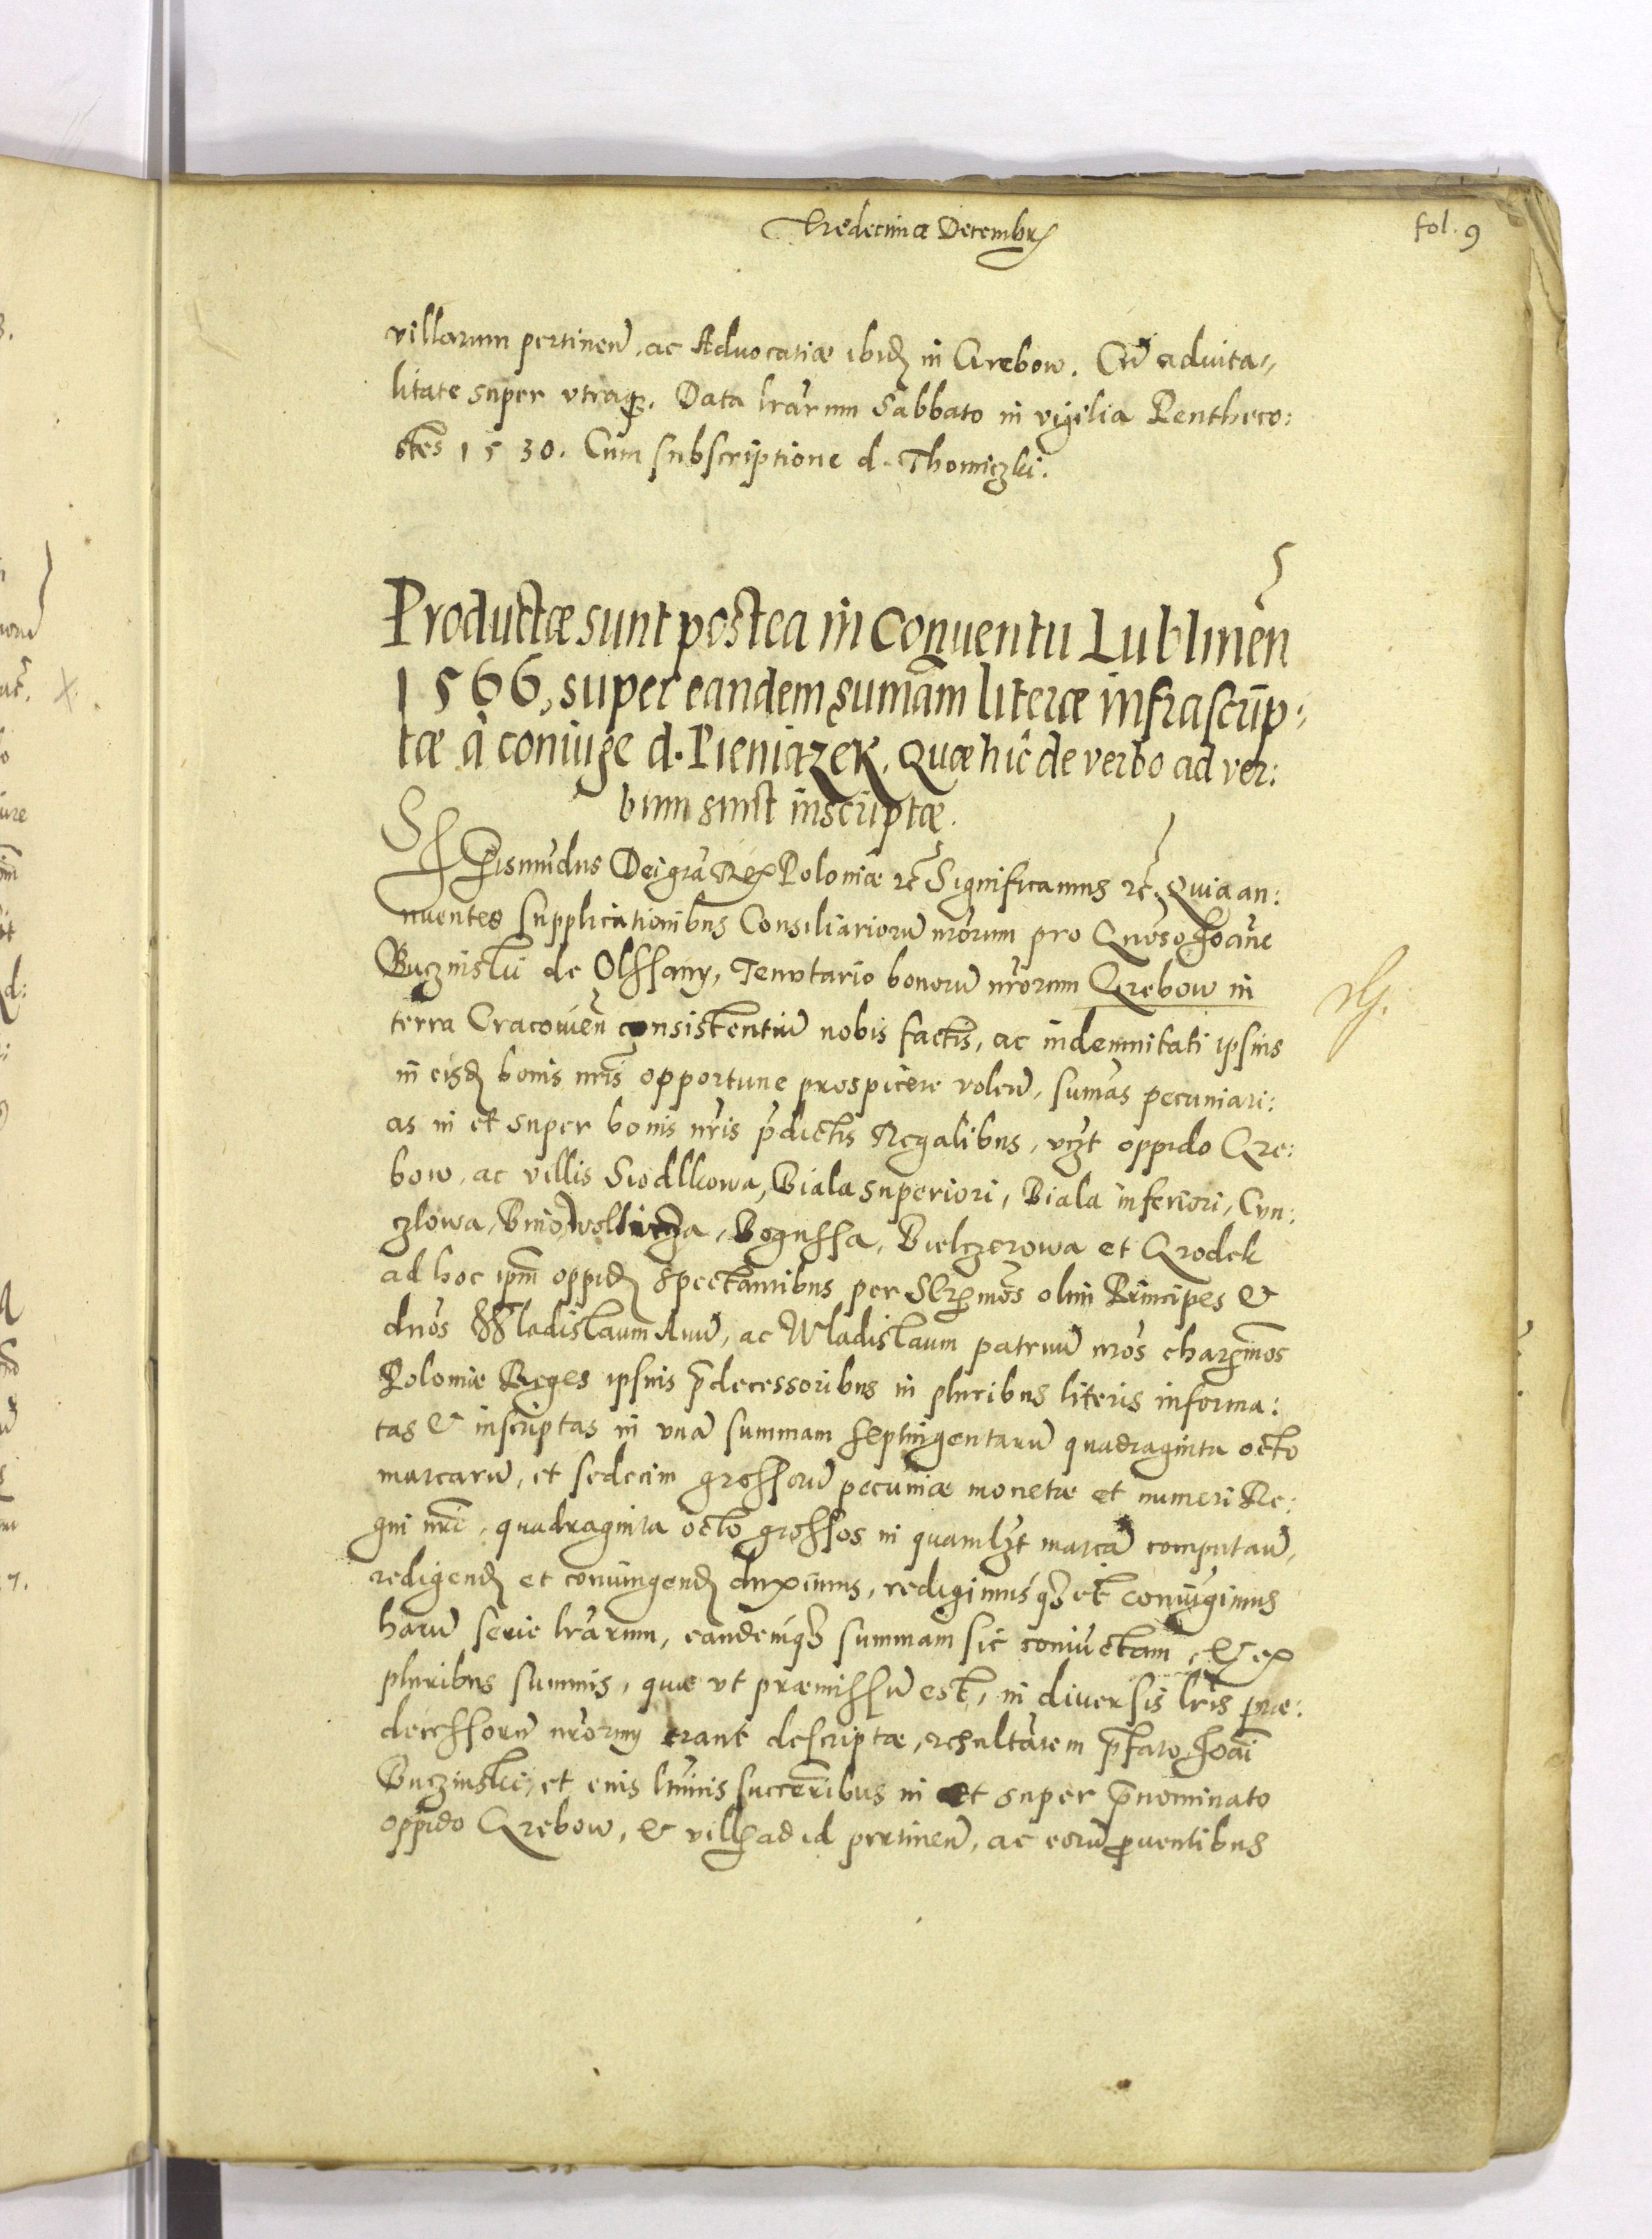 Tredecima Decembris
fol. 9
villarum pertineñ, ac Aduocatiæ ibid. in Grebow. Cũ aduita-
litate super vtraq;. Data lrarum Sabbato in vigilia Pentheco:
stes 1530. Cum subscriptione d. Thomiczki.
Productæ sunt postea in Conuentu Lublineñ
1566, super eandem sumam literæ infrascrip:
tæ à coniuge d. Pieniązek, quæ hîc de verbo ad ver:
bum sunt inscriptæ.
Sigismũdus Dei grã Rex Poloniæ &c̃ Significamus &c̃. Quia an:
nuentes supplicationibus Consiliariorũ nrõrum pro Gnõso Joañe
Buczinski de Olssany, Tenutario bonorũ nrõrum Grebow in
terra Cracouieñ consistentiũ nobis factis, ac indemnitati ipsius
in eisd. bonis nr̃is opportune prospicere voleñ, sum̃as pecuniari:
as in et super bonis nr̃is p̃dictis Regalibus, vizt oppido Gre:
bow, ac villis Siodlkowa, Biala superiori, Biala inferiori, Cun:
czlowa, Bogussa, Bielczarowa et Grodek
ad hoc ipm̃ oppid. spectantibus per Ser̃mos olim Principes &
dños Wladislaum Auũ, ac Wladislaum patruũ nrõs char̃mos
Poloniæ Reges ipsius p̃decessoribus in pluribus literis informa:
tas & inscriptas in vnã summam septingentarũ quadraginta octo
marcarũ, et sedecim grossorũ pecuniæ monetæ et numeri Re:
gni nr̃i, quadraginta octo grossos in quamlzt marcã computañ,
redigend. et coniungend. duximus, redigimusq; et coniũgimus
harũ serie lrãrum, eandemq; summam sic coniũctam, & ex
pluribus summis, quæ vt præmissũ est, in diuersis lr̃is præ:
decessorũ nrõrum erant descriptæ, resultãtem p̃fato Joañi
Buczinski, et eius ltimis successoribus in et super p̃nominato
oppido Grebow, & villis ad id pertineñ, ac eorũ prouentibus